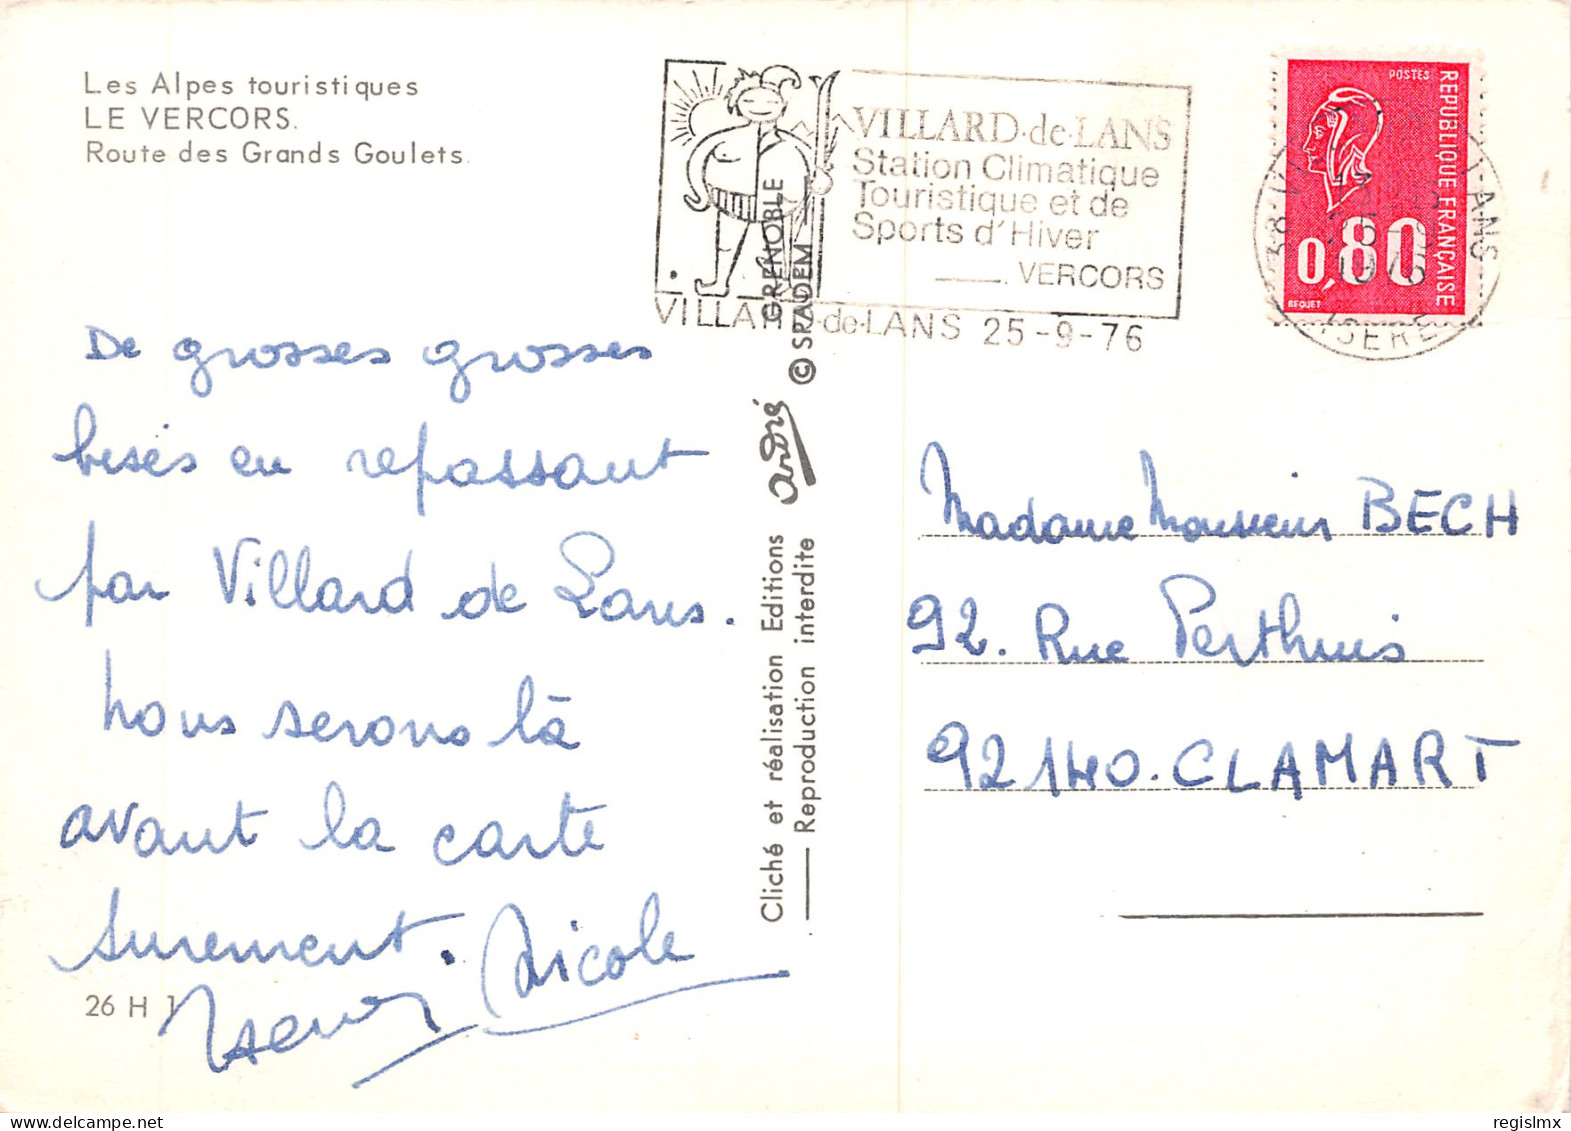 Les Alpes touristiques
LE VERCORS.
Route des Grands Goulets.
VILLARD-de-LANS
Station Climatique
Touristique et de
Sports d'Hiver
VERCORS
VILLARD-de-LANS 25-9-76
POSTES
REPUBLIQUE FRANÇAISE
0,80
BEQUET
38 VILLARD LANS
25-9
1976
ISERE
De grosses grosses
bises en repassant
par Villard de Lans.
Nous serons là
avant la carte
surement.
Nicole
26 H 1
Cliché et réalisation Editions André GRENOBLE
Reproduction interdite © SPADEM
Madame Monsieur BECH
92. Rue Perthuis
92140. CLAMART
regislmx